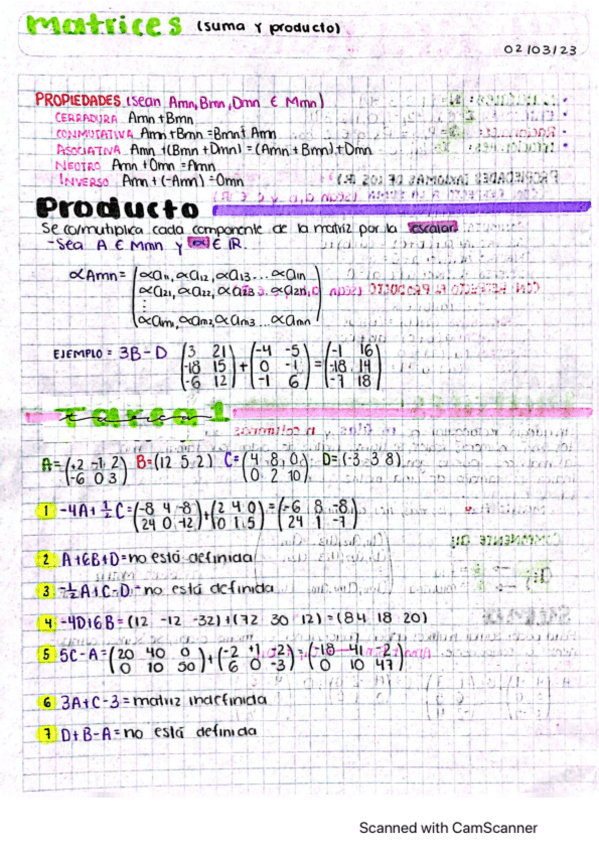 matrices (suma y producto)
02/03/23
PROPIEDADES (sean Amn, Bmn, Dmn ∈ Mmn)
CERRADURA Amn+Bmn
CONMUTATIVA Amn+Bmn=Bmn+Amn
ASOCIATIVA Amn+(Bmn+Dmn)=(Amn+Bmn)+Dmn
NEUTRO Amn+Omn=Amn
INVERSO Amn+(-Amn)=Omn
Producto
Se multiplica cada componente de la matriz por la escalar
-Sea A ∈ Mmn y α ∈ IR.
αAmn = (αa11, αa12, αa13... αa1n
αa21, αa22, αa23... αa2n
⋮
αam1, αam2, αam3... αamn)
EJEMPLO = 3B-D (3 21) + (-4 -5) = (-1 16)
(-18 15) (0 -1) (-18 14)
(-6 12) (-1 6) (-7 18)
Tarea 1
A=(2 -1 2) B=(12 5 2) C=(4 8 0) D=(-3 3 8)
(-6 0 3) (0 2 10)
1 -4A+½C=(-8 4 -8)+(2 4 0)=(-6 8 -8)
(24 0 -12) (0 1 5) (24 1 -7)
2 A+6B+D=no está definida
3 -½A+C-D=no está definida
4 -4D+6B=(12 -12 -32)+(72 30 12)=(84 18 20)
5 5C-A=(20 40 0)+(-2 +1 -2)=(-18 41 -2)
(0 10 50) (6 0 -3) (0 10 47)
6 3A+C-3=matriz indefinida
7 D+B-A=no está definida
Scanned with CamScanner